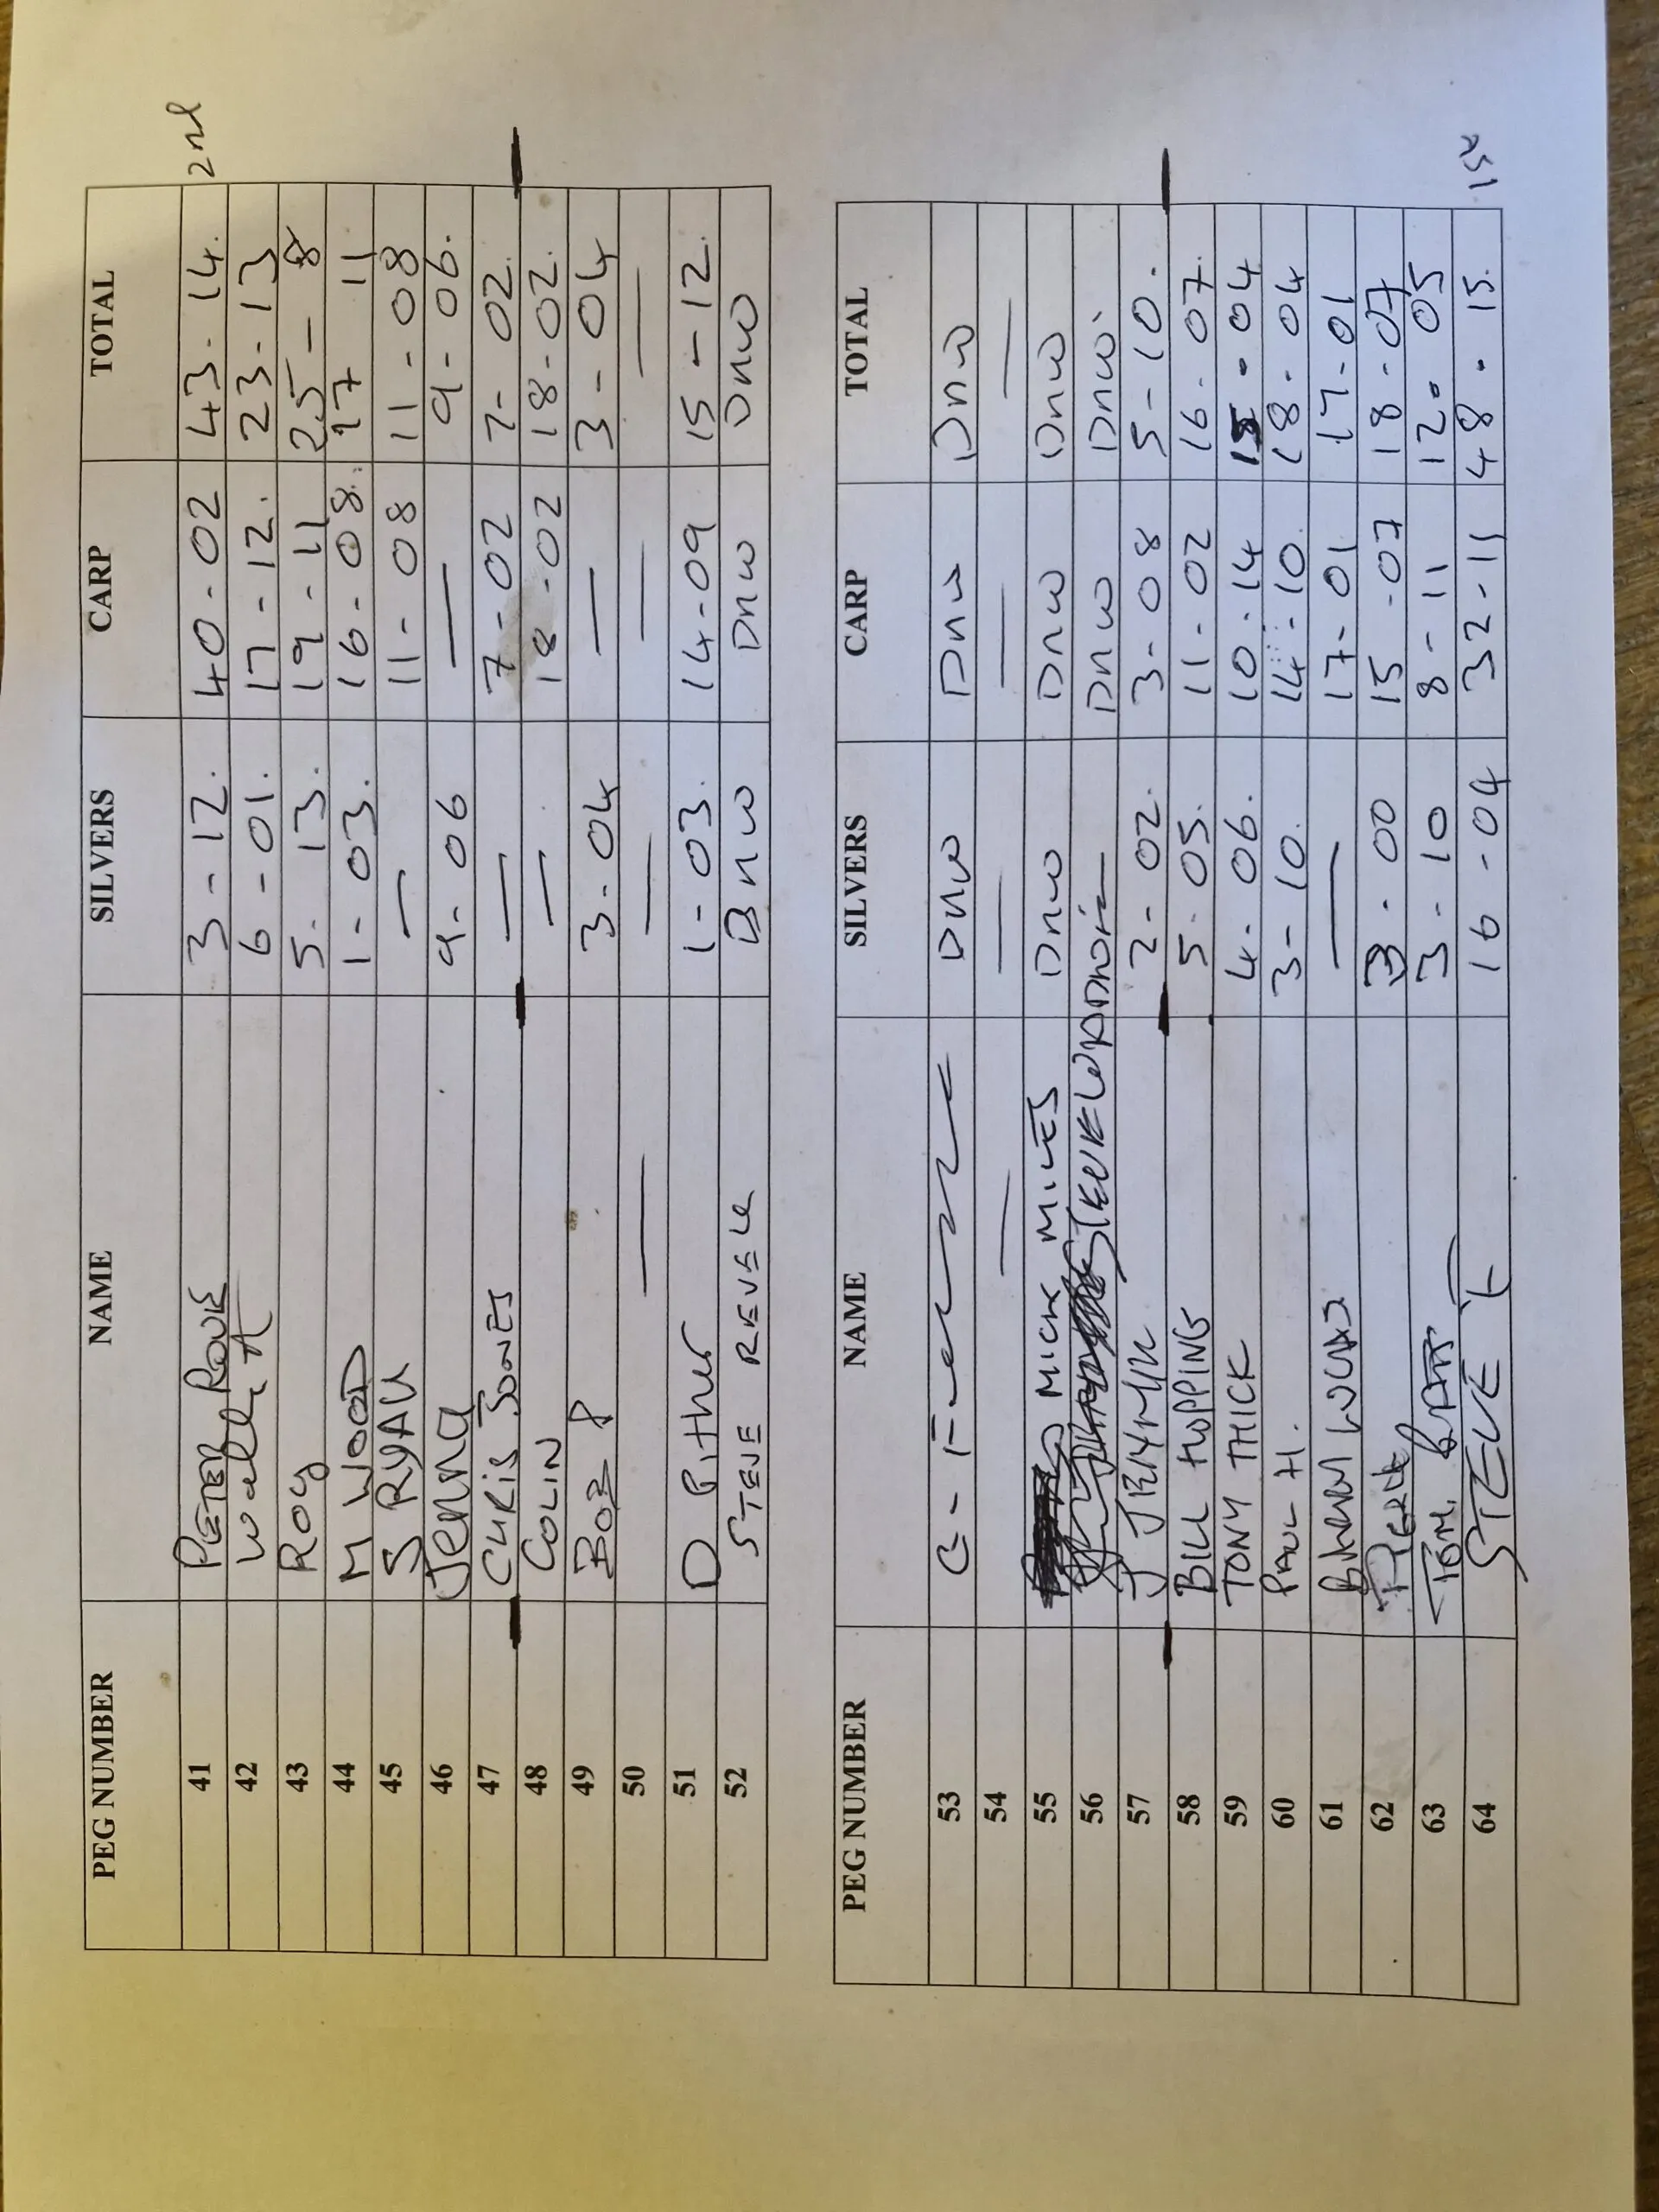 PEG NUMBER NAME SILVERS CARP TOTAL
41 PETER ROWE 3-12. 40-02 43-14. 2nd
42 6-01. 17-12. 23-13
43 Roy 5-13. 19-11 25-8
44 M WOOD 1-03. 16-08. 17 11
45 S RYAN — 11-08 11-08
46 Jenna 9-06 — 9-06.
47 CHRIS JONES — 7-02 7-02.
48 COLIN — 18-02 18-02.
49 BOB P 3-04 — 3-04
50 — — — —
51 D Pither 1-03. 14-09 15-12.
52 STEVE REVELL DNW DNW DNW
PEG NUMBER NAME SILVERS CARP TOTAL
53 DNW DNW DNW
54 — — — —
55 MICK MILES DNW DNW DNW
56 STEVE DNW DNW.
57 J 2-02. 3-08 5-10.
58 BILL HOPPING 5-05. 11-02 16-07.
59 TONY THICK 4-06. 10-14 15-04
60 PAUL H. 3-10. 14-10. 18-04
61 LUCAS — 17-01 17-01
62 3-00 15-07 18-07
63 TOM 3-10 8-11 12-05
64 STEVE 16-04 32-11 48-15. 1st